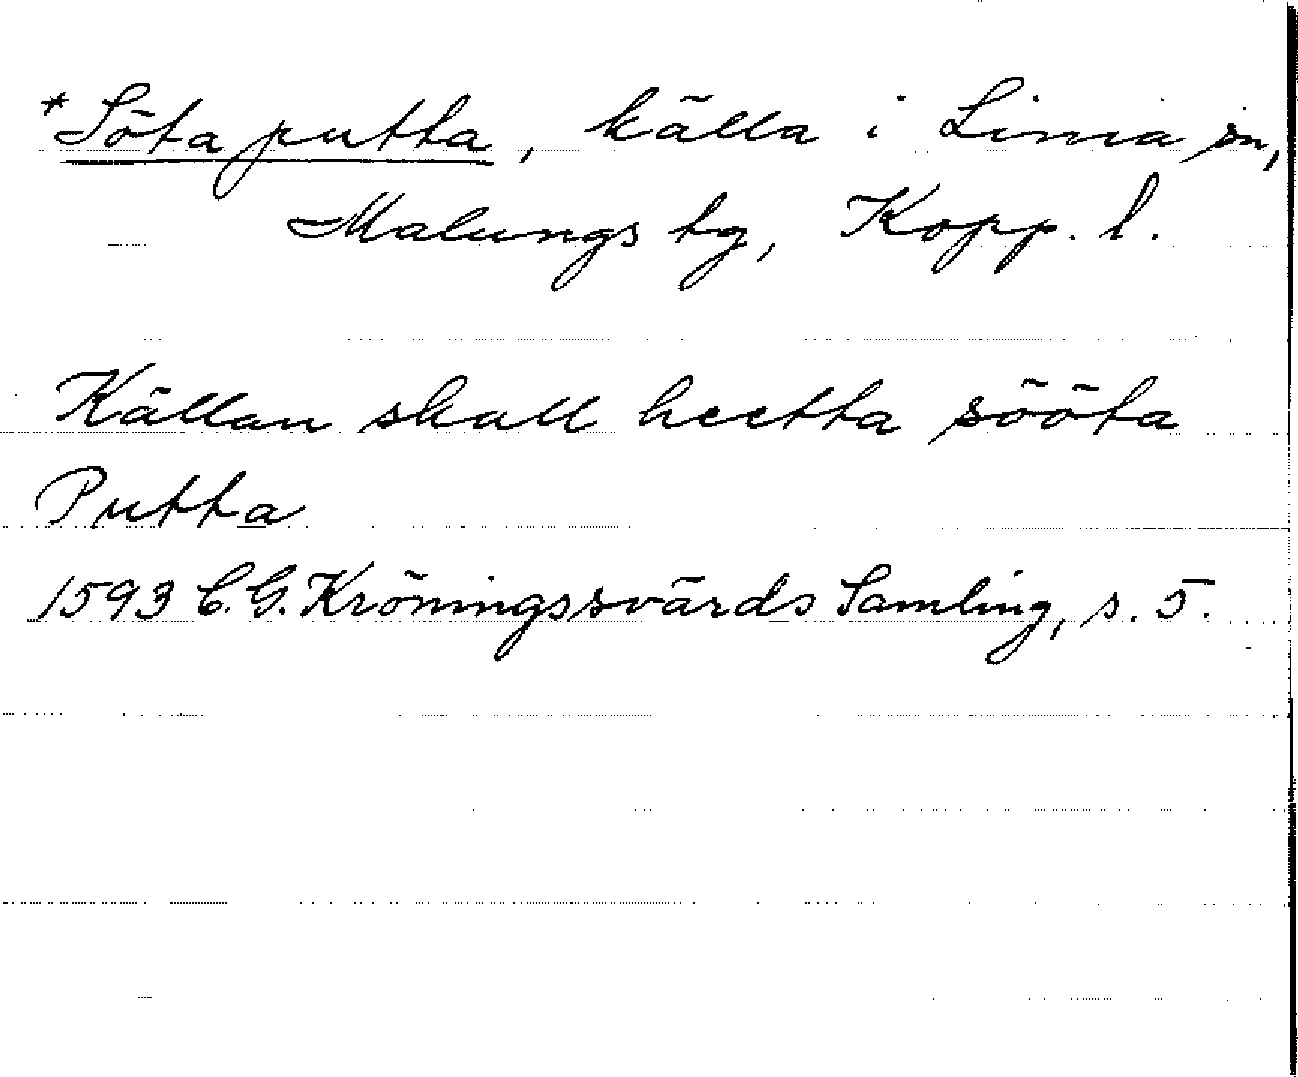 *Söta putta, källa i Lima sn,
Malungs tg, Kopp. l.
Källan skall heetta sööta
Putta
1593 C.G. Kröningssvärds Samling, s. 5.